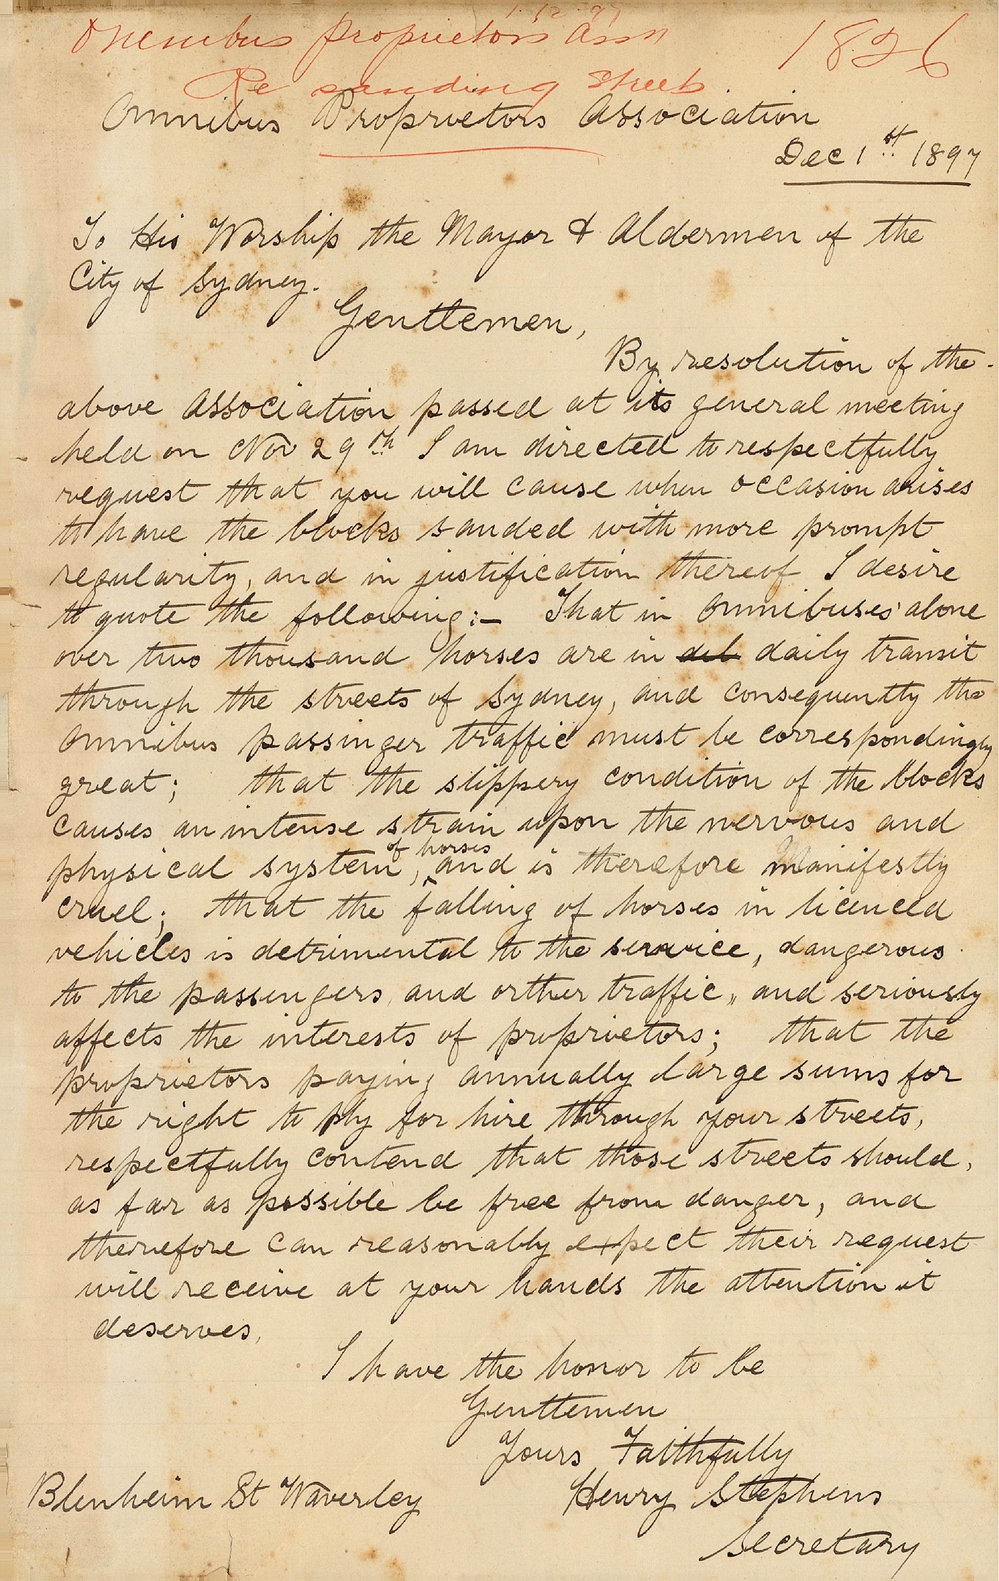 1.12.97
Omnibus Proprietors Assn 1826
Re sanding Streets
Omnibus Proprietors Association
Dec 1st 1897
To His Worship the Mayor & Aldermen of the
City of Sydney.
Gentlemen,
By resolution of the
above Association passed at its general meeting
held on Nov 29th I am directed to respectfully
request that you will cause when occasion arises
to have the blocks sanded with more prompt
regularity, and in justification thereof I desire
to quote the following:- That in Omnibuses alone
over two thousand horses are in del daily transit
through the streets of Sydney, and consequently the
Omnibus passinger traffic must be correspondingly
great; that the slippery condition of the blocks
causes an intense strain upon the nervous and
physical system, of horses and is therefore manifestly
cruel; that the falling of horses in licenced
vehicles is detrimental to the service, dangerous
to the passengers and orther traffic, and seriously
affects the interests of proprietors; that the
proprietors paying annually large sums for
the right to ply for hire through your streets,
respectfully contend that those streets should,
as far as possible be free from danger, and
therefore can reasonably expect their request
will receive at your hands the attention it
deserves.
I have the honor to be
Gentlemen
Yours Faithfully
Blenheim St Waverley Henry Stephens
Secretary